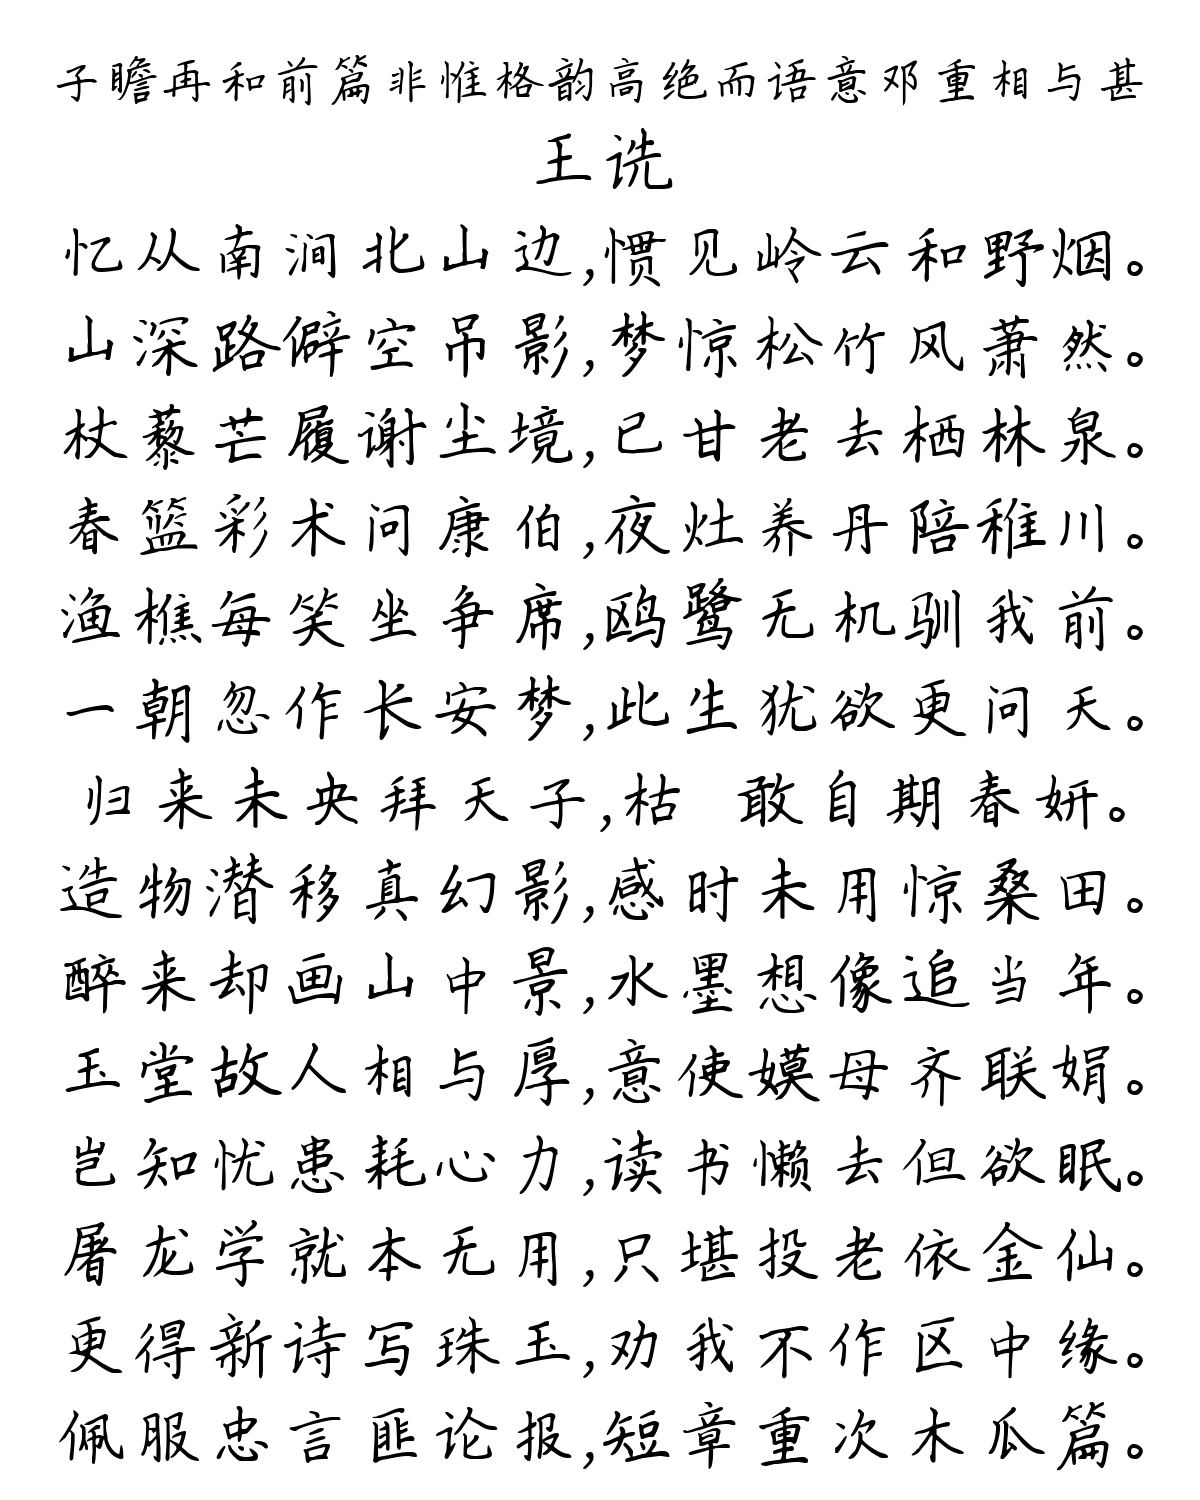 子瞻再和前篇非惟格韵高绝而语意邓重相与甚
王诜
忆从南涧北山边,惯见岭云和野烟。
山深路僻空吊影,梦惊松竹风萧然。
杖藜芒履谢尘境,已甘老去栖林泉。
春篮彩术问康伯,夜灶养丹陪稚川。
渔樵每笑坐争席,鸥鹭无机驯我前。
一朝忽作长安梦,此生犹欲更问天。
归来未央拜天子,枯 敢自期春妍。
造物潜移真幻影,感时未用惊桑田。
醉来却画山中景,水墨想像追当年。
玉堂故人相与厚,意使嫫母齐联娟。
岂知忧患耗心力,读书懒去但欲眠。
屠龙学就本无用,只堪投老依金仙。
更得新诗写珠玉,劝我不作区中缘。
佩服忠言匪论报,短章重次木瓜篇。